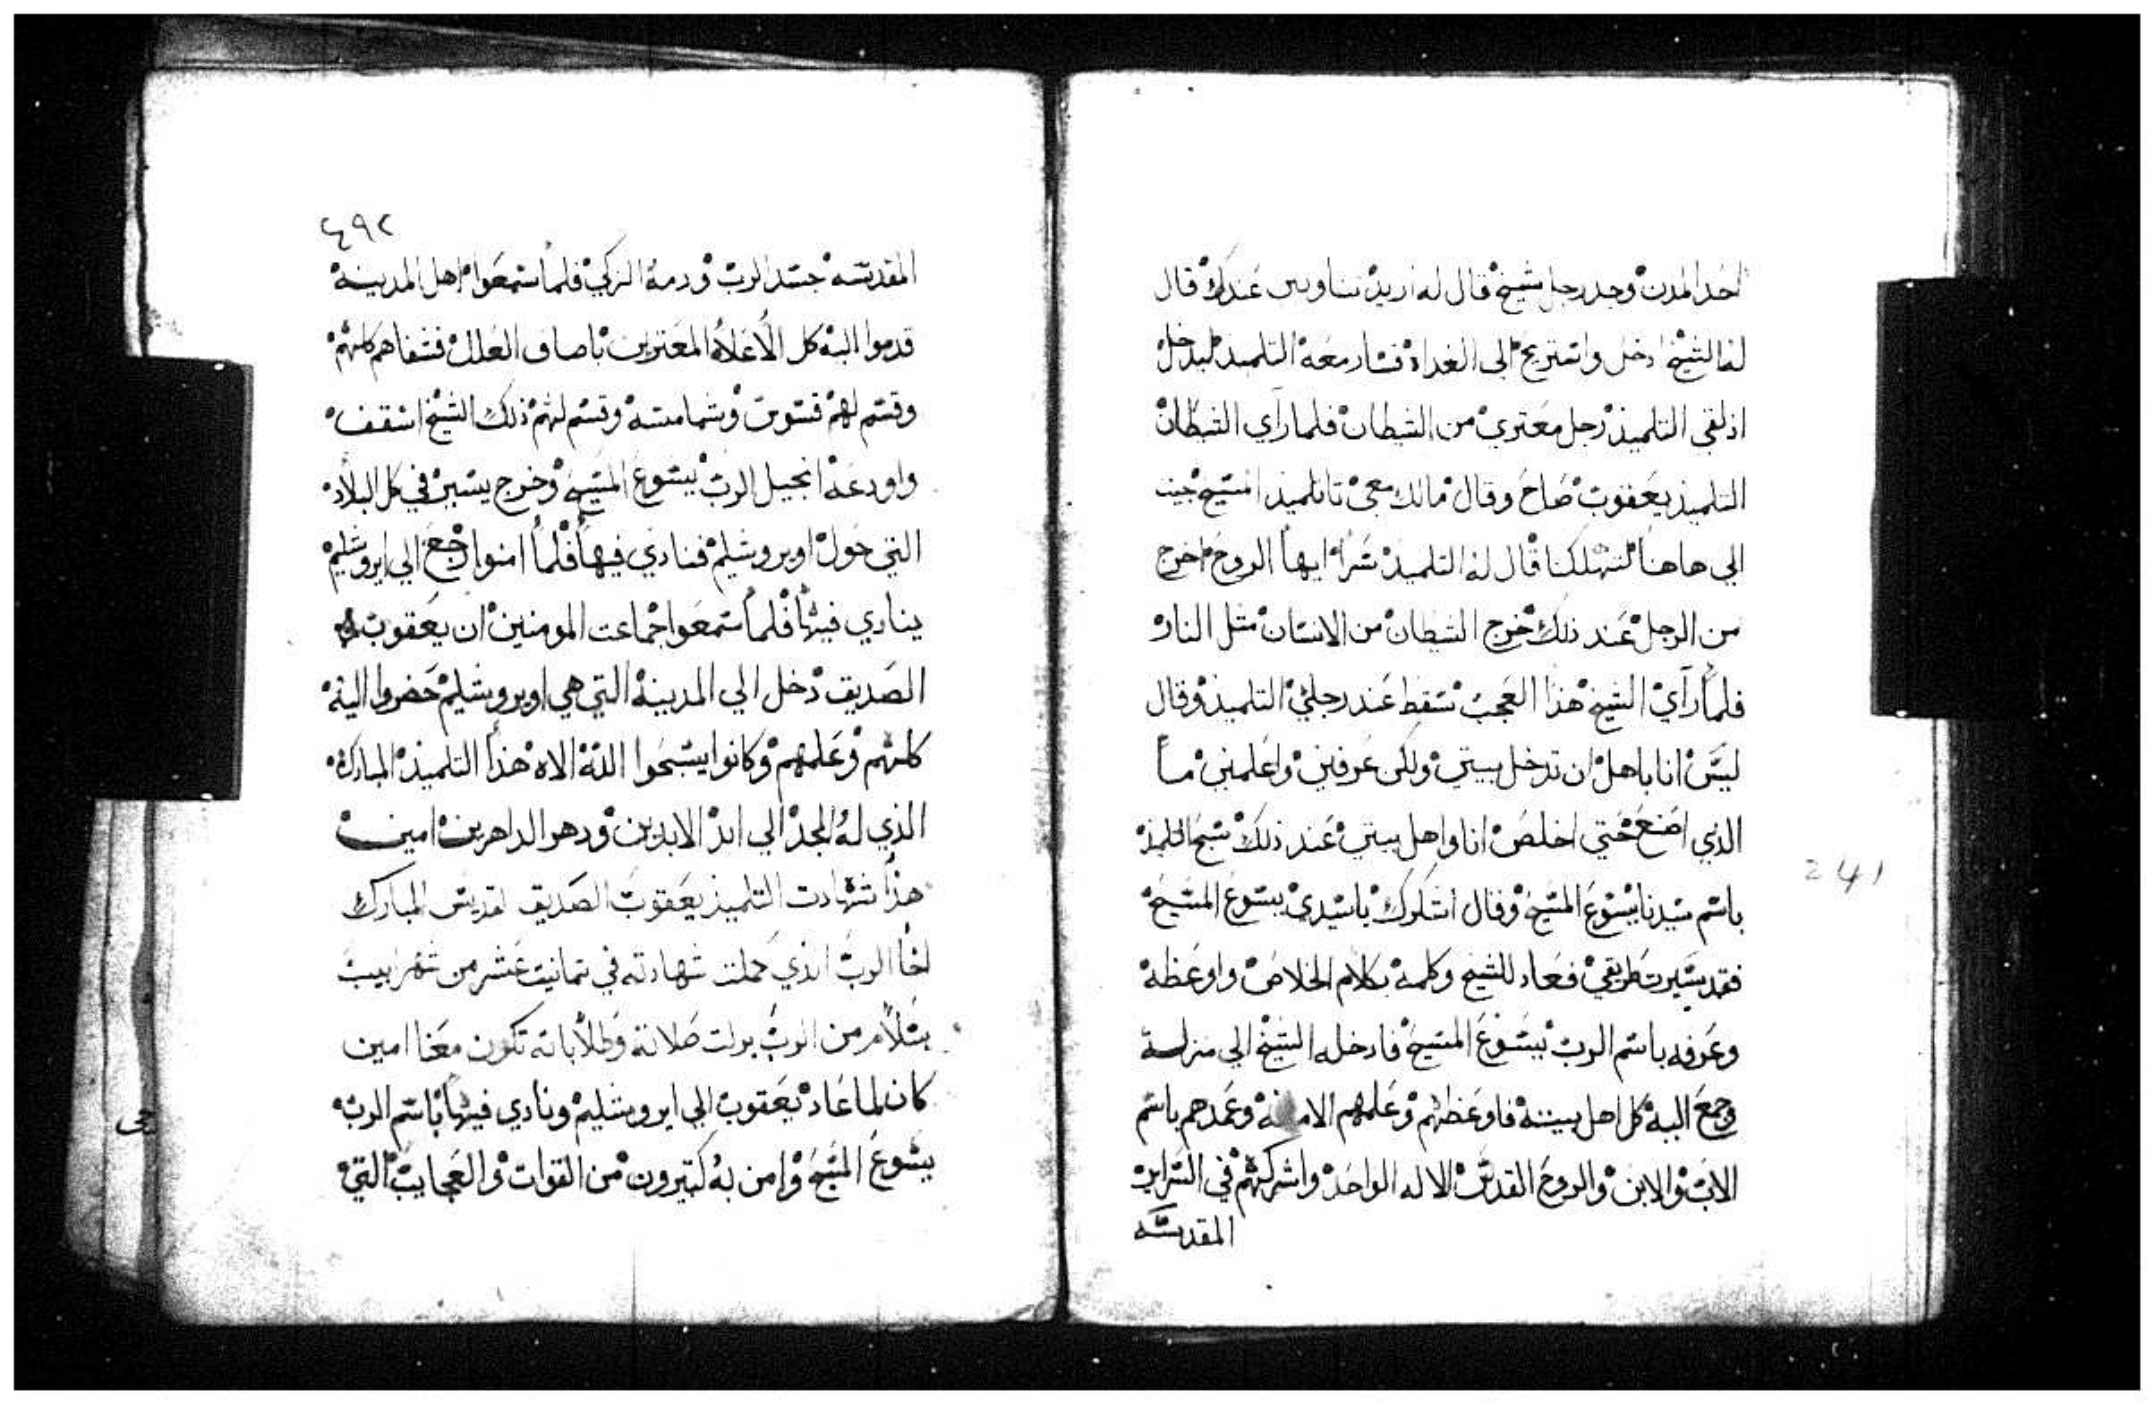 احد المدن وجد رجل شيخ قال له اريد نناوبين عندك قال
له الشيخ ادخل واستريح الي الغداة فسار معه التلميد ليدخل
اذ لقي التلميذ رجل معتري من الشيطان فلما رآي الشيطان
التلميذ يعقوب صاح وقال مالك معي تاتلميذ المسيح جيت
الي هاهنا لتهلكنا قال له التلميذ شرا ايها الروح اخرج
من الرجل عند ذلك خرج الشيطان من الانسان مثل النار
فلما رآي الشيخ هذا العجب سقط عند رجلي التلميذ وقال
ليس انا باهل ان تدخل بيتي ولكن عرفني واعلمني ما
الذي اصنع حتي اخلص انا واهل بيتي عند ذلك سبح التلميذ
باسم سيدنا يسوع المسيح وقال اشكرك ياسيدي يسوع المسيح
فقد سيرت طريقي فعاد للشيخ وكلمه بكلام الخلاص واوعظه
وعرفه باسم الرب يسوع المسيح فادخله الشيخ الي منزله
وجمع اليه كل اهل بيته فاوعظهم وعلمهم الامانه وعمدهم باسم
الاب والابن والروح القدس الاله الواحد واشركهم في السراير
المقدسه
241
٤٩٢
المقدسه جسد الرب ودمه الزكي فلما سمعوا اهل المدينه
قدموا اليه كل الاعلاء المعترين باصاف العلل فشفاهم كلهم
وقسم لهم قسوس وشمامسه وقسم لهم ذلك الشيخ اسقف
واودعه انجيل الرب يسوع المسيح وخرج يسير في كل البلاد
التي حول اويروشليم فنادي فيها فلما امنوا رجع الي ايروشليم
ينادي فيها فلما سمعوا جماعت المومنين ان يعقوب
الصديق دخل الي المدينه التي هي اويروشليم حضروا اليه
كلهم وعلمهم وكانوا يسبحوا الله الاه هذا التلميذ المبارك
الذي له المجد الي ابد الابدين ودهر الداهرين امين
هذا شهادت التلميذ يعقوب الصديق القديس المبارك
اخا الرب الذي كملت شهادته في تمانيت عشر من شهر ابيب
بسلام من الرب بركت صلاته وطلاباته تكون معنا امين
كان لما عاد يعقوب الي ايروشليم ونادي فيها باسم الرب
يسوع المسيح وامن به كتيرون من القوات والعجايب التي